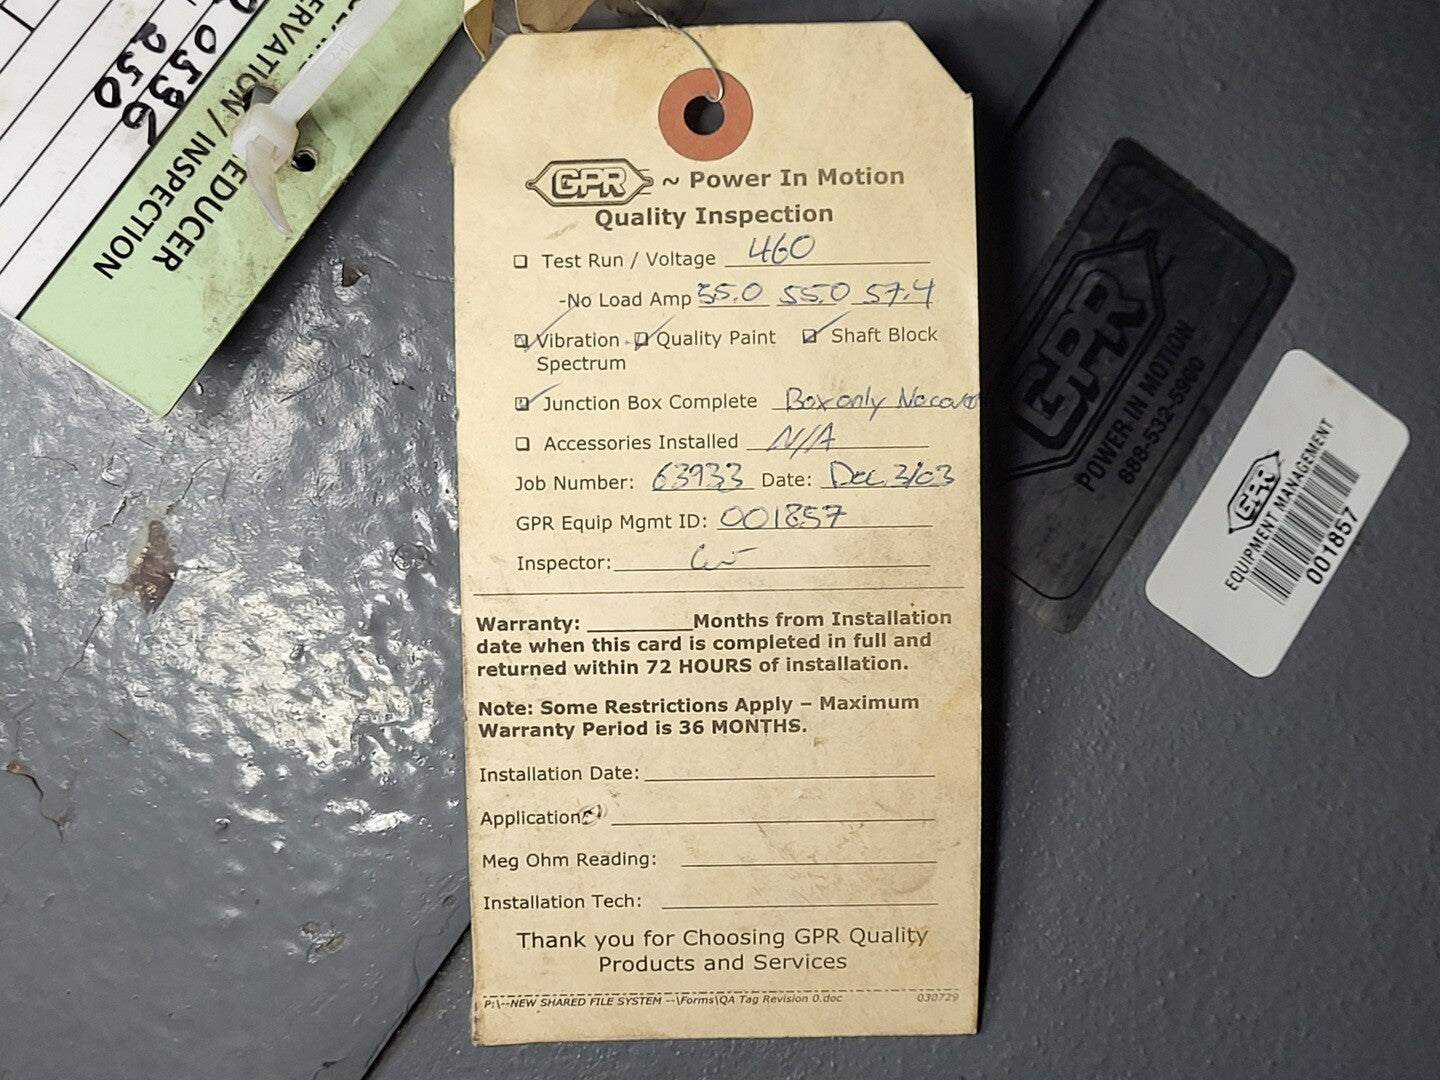 0536
250
SERVATION / INSPECTION
REDUCER
GPR ~ Power In Motion
Quality Inspection
☐ Test Run / Voltage 460
-No Load Amp 55.0 55.0 57.4
☑ Vibration ☑ Quality Paint ☑ Shaft Block
Spectrum
☑ Junction Box Complete Box only No cover
☐ Accessories Installed N/A
Job Number: 63933 Date: Dec. 3/03
GPR Equip Mgmt ID: 001857
Inspector:
Warranty: ________ Months from Installation
date when this card is completed in full and
returned within 72 HOURS of installation.
Note: Some Restrictions Apply – Maximum
Warranty Period is 36 MONTHS.
Installation Date:
Application:
Meg Ohm Reading:
Installation Tech:
Thank you for Choosing GPR Quality
Products and Services
P:\--NEW SHARED FILE SYSTEM --\Forms\QA Tag Revision 0.doc 030729
GPR
POWER IN MOTION
888-532-5900
GPR
EQUIPMENT MANAGEMENT
001857